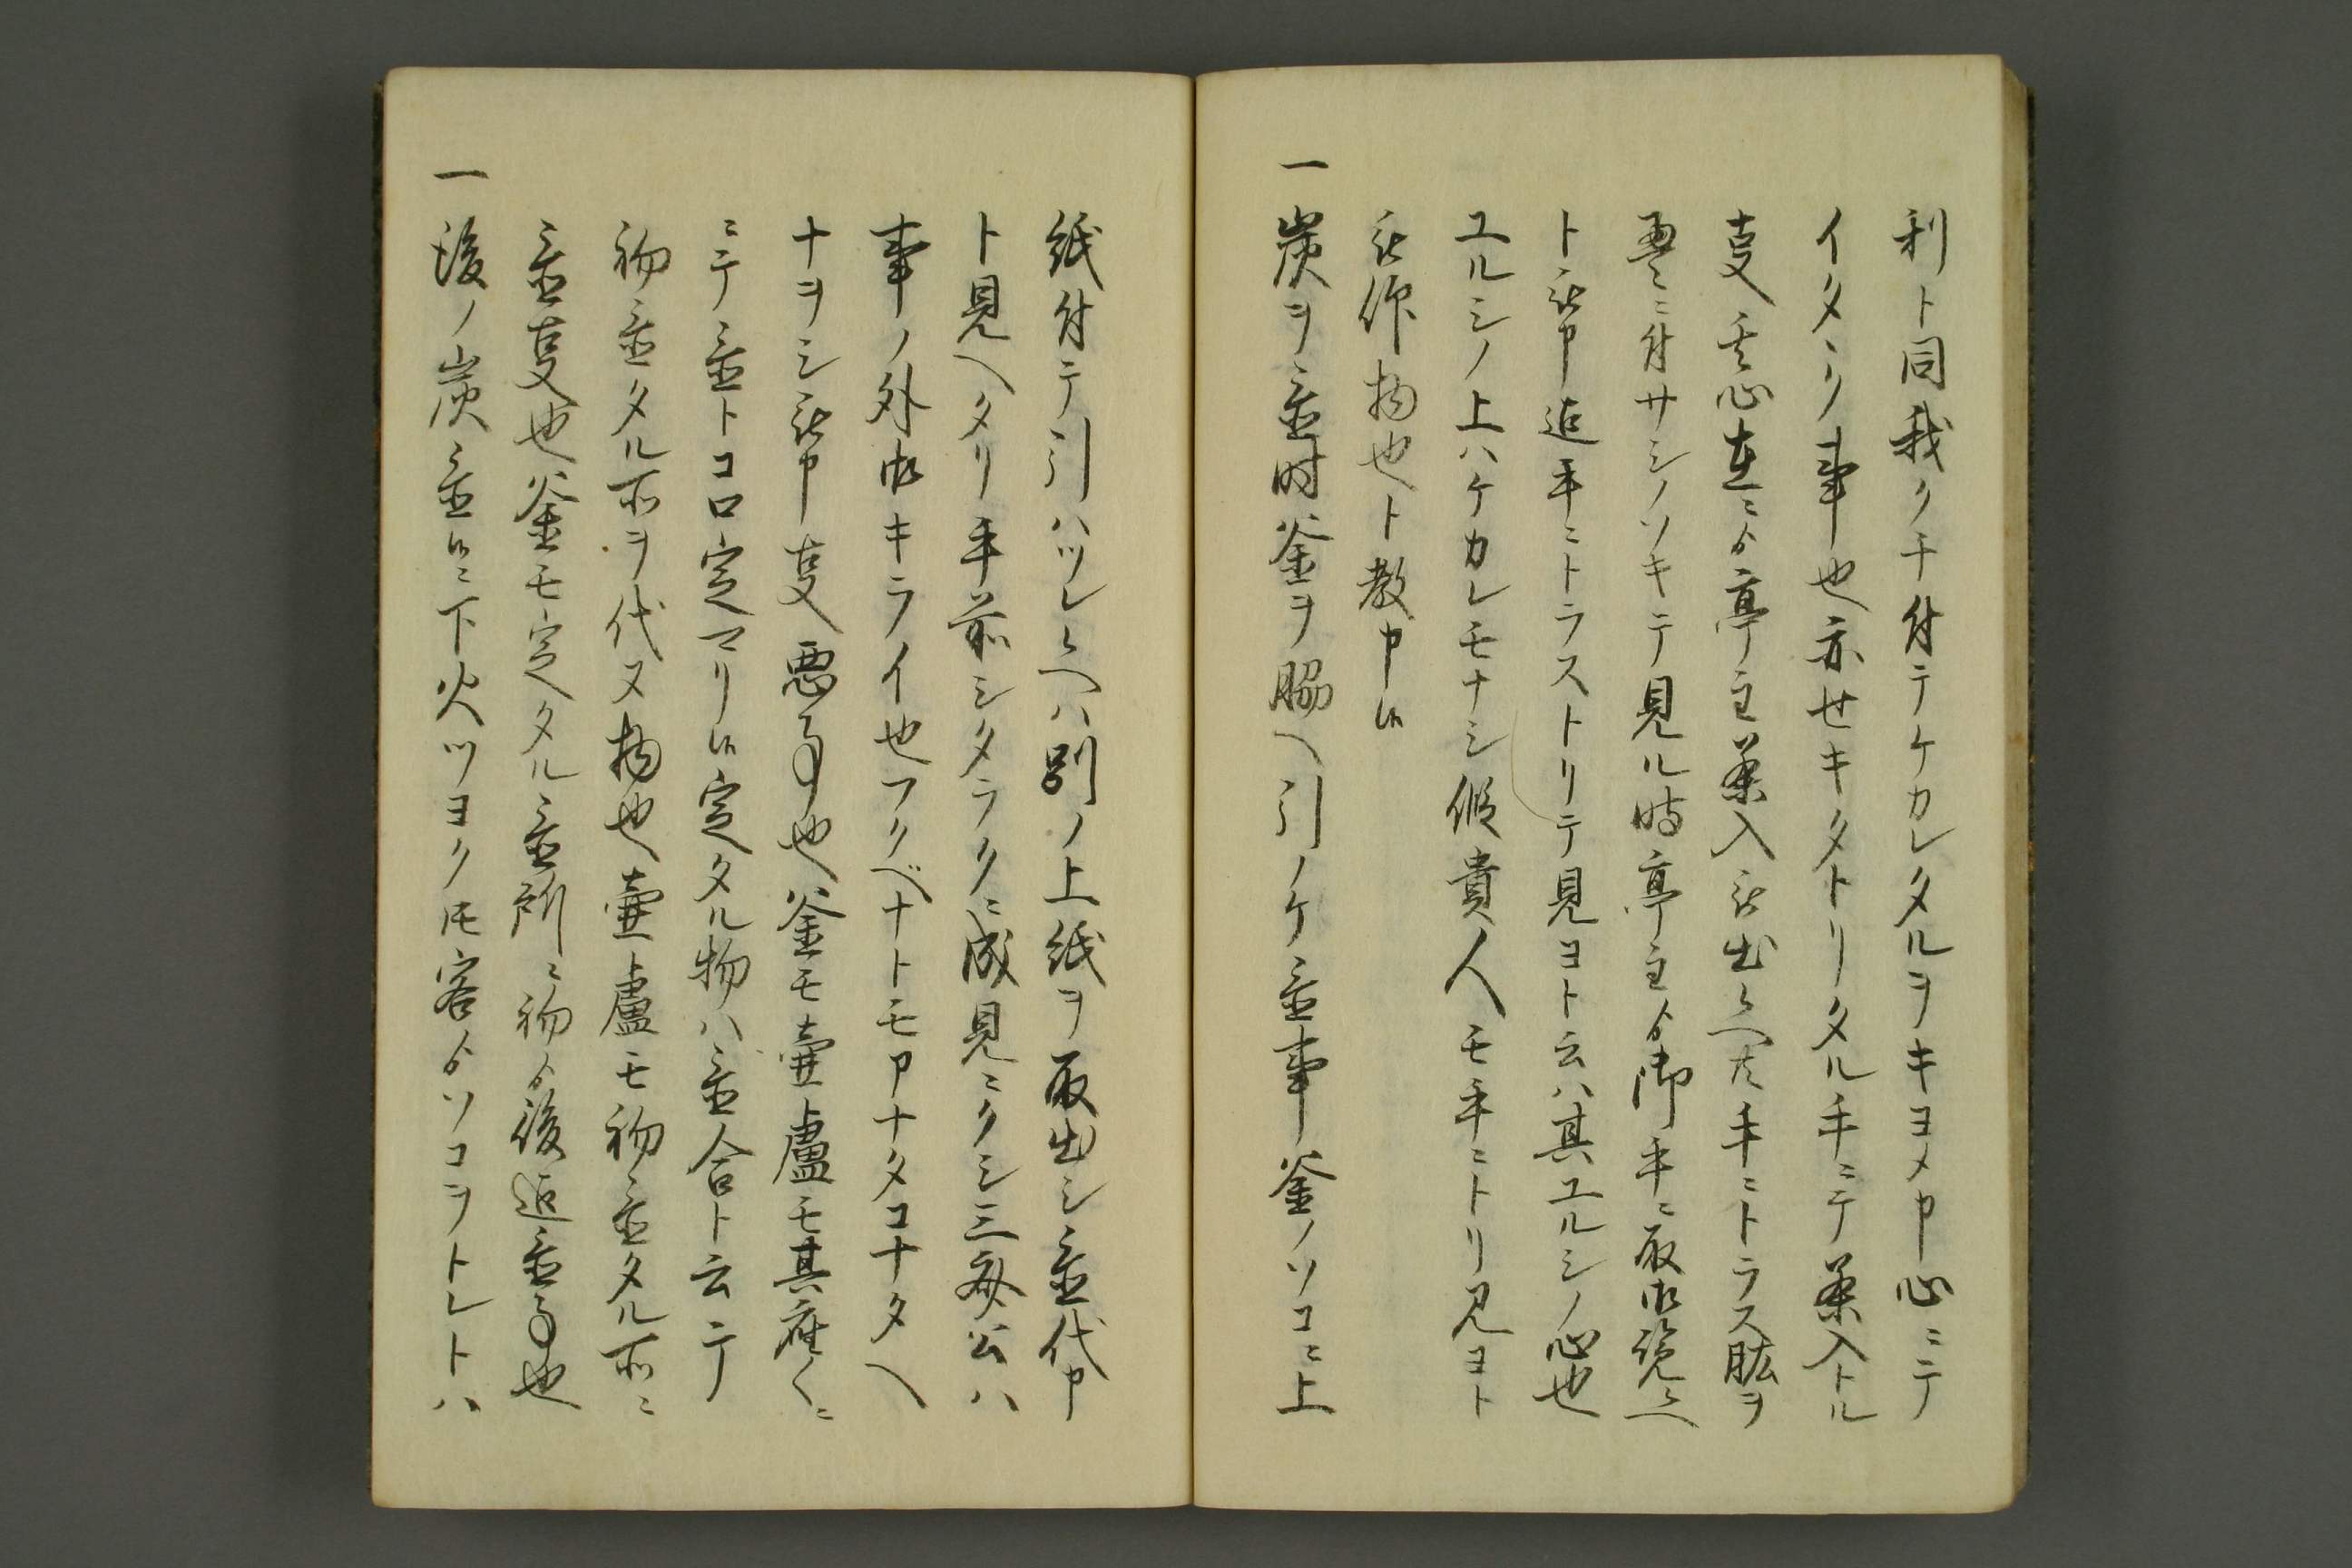 利ト同我クチ付テケカレタルヲキヨメ申心ニテ
イタミク事也亦せキタトリタル手ニテ茶入トル
支 其心在ニゟ亭主茶入被出候ヘ共手ニトラス肱ヲ
畳ニ付サシノソキテ見ル時亭主ゟ御手ニ取御覧候ヘ
ト被申迄手ニトラストリテ見ヨト云ハ其ユルシノ心也
ユルシノ上ハケカレモナシ假貴人モ手ニトリ見ヨト
被作物也ト教申候
一炭ヲ置時釜ヲ脇ヘ引ノケ置事釜ノソコニ上
紙付テ引ハツレ候ヘハ別ノ上紙ヲ取出シ置代申
ト見ヘタリ手前シタラクニ成見ニクシ三斎公ハ
事ノ外御キライ也フクベナトモアナタコナタヘ
ナヲシ被申支悪事也釜モ壷盧モ其座〳〵ニ
ニテ置トコロ定マリ候定タル物ハ置合ト云テ
初置タル所ヲ代ヌ物也壷盧モ初置タル所ニ
置支也釜モ定タル置所ニ初ゟ後迄置事也
一後ノ炭置候ニ下火ツヨク共客ゟソコヲトレトハ